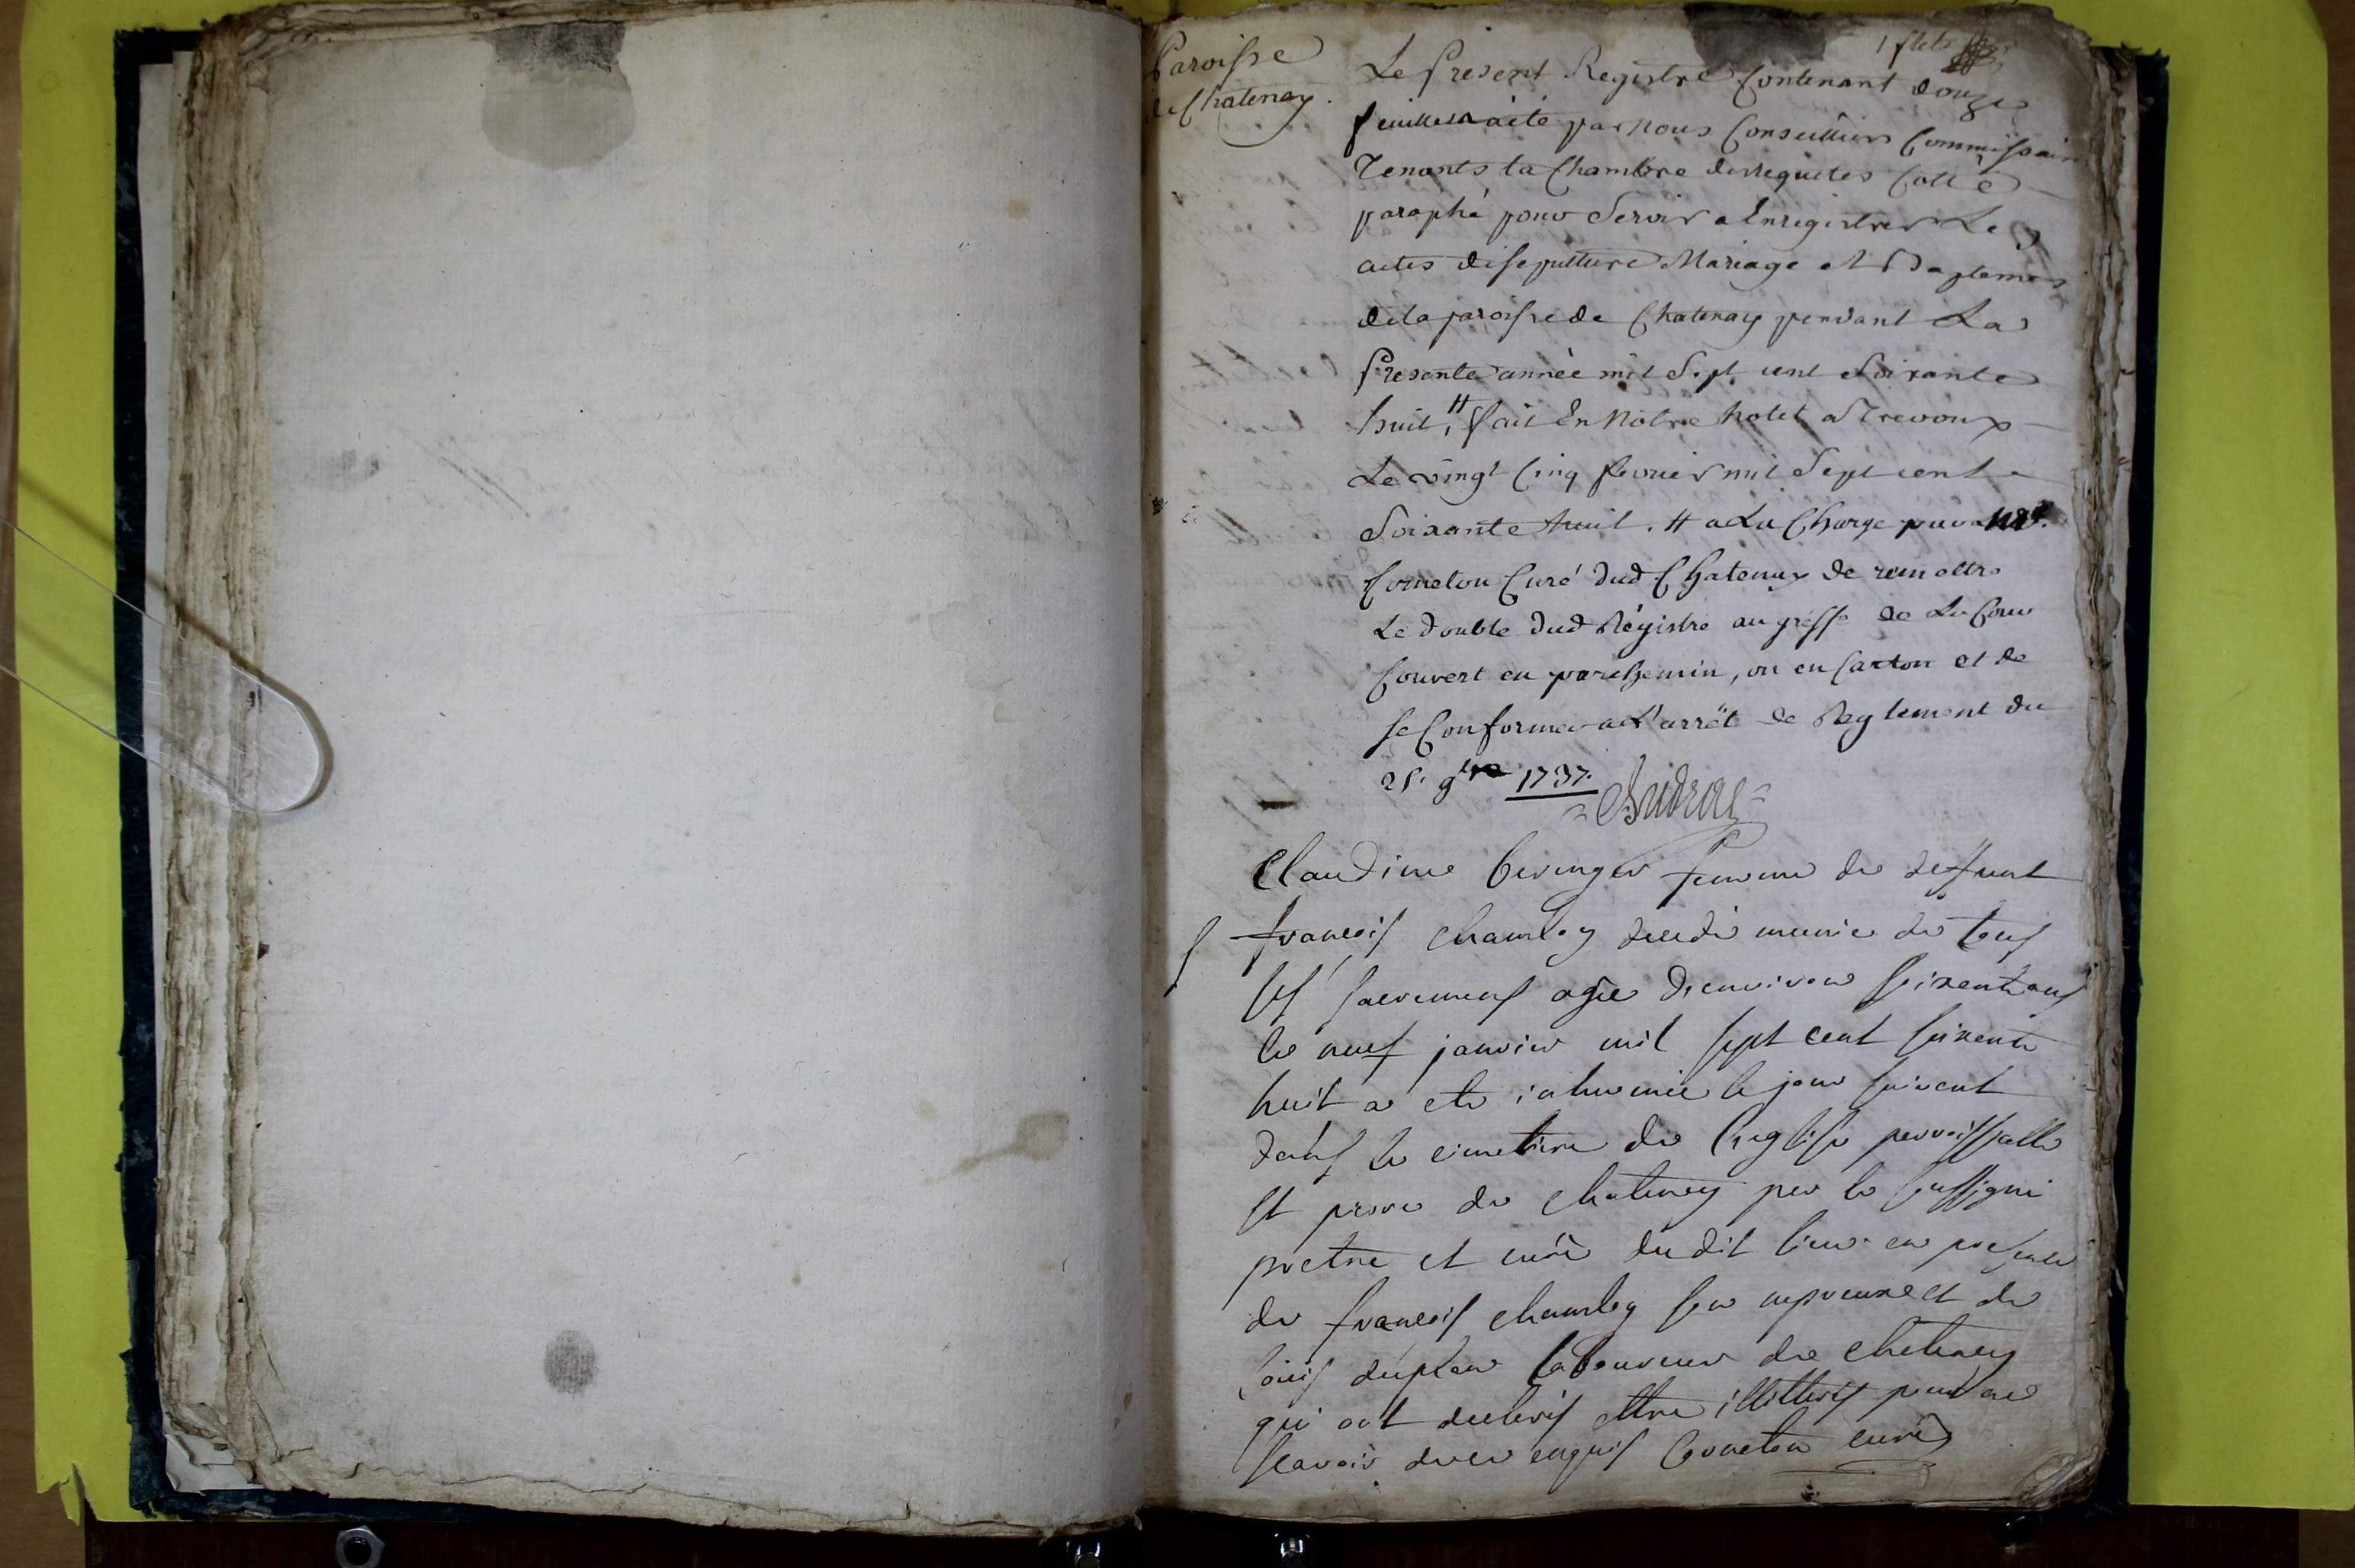 Paroisse
de Chatenay.
Le Present Registre Contenant douze
feuilles a été par nous Conseillers Commissaire
Tenants la Chambre des requetes Cotté
paraphé pour Servir a Enregistrer Les
actes de sepulture Mariage et Baptemes
de la paroisse de Chatenay pendant La
Presente année mil Sept cent Soixante
huit, fait En Nôtre hotel a Trevoux
Le vingt Cinq fevrier mil Sept cent
Soixante huit. # a La Charge par
Corneton Curé dud Chatenay de remettre
Le double dud Régistre au greffe de La Cour
Couvert en parchemin, ou en Carton et de
se Conformer a L'arrêt de Reglement du
25. 9bre 1737.
Claudine beringer femme de deffunt
francois chamboy munie de tous
ses sacremens agée denviron soixentans
le neuf janvier mil sept cent soixente
huit a ete inhumée le jour suivent
dans le cimetiere de leglise parroissialle
de chatenay par le soussigné
pretre et curé dudit lieu en presence
de francois chamboy et de
louis duplan laboureur de chatenay
qui ont declarés ettre illitterés pour ne
scavoir de ce enquis Corneton curé